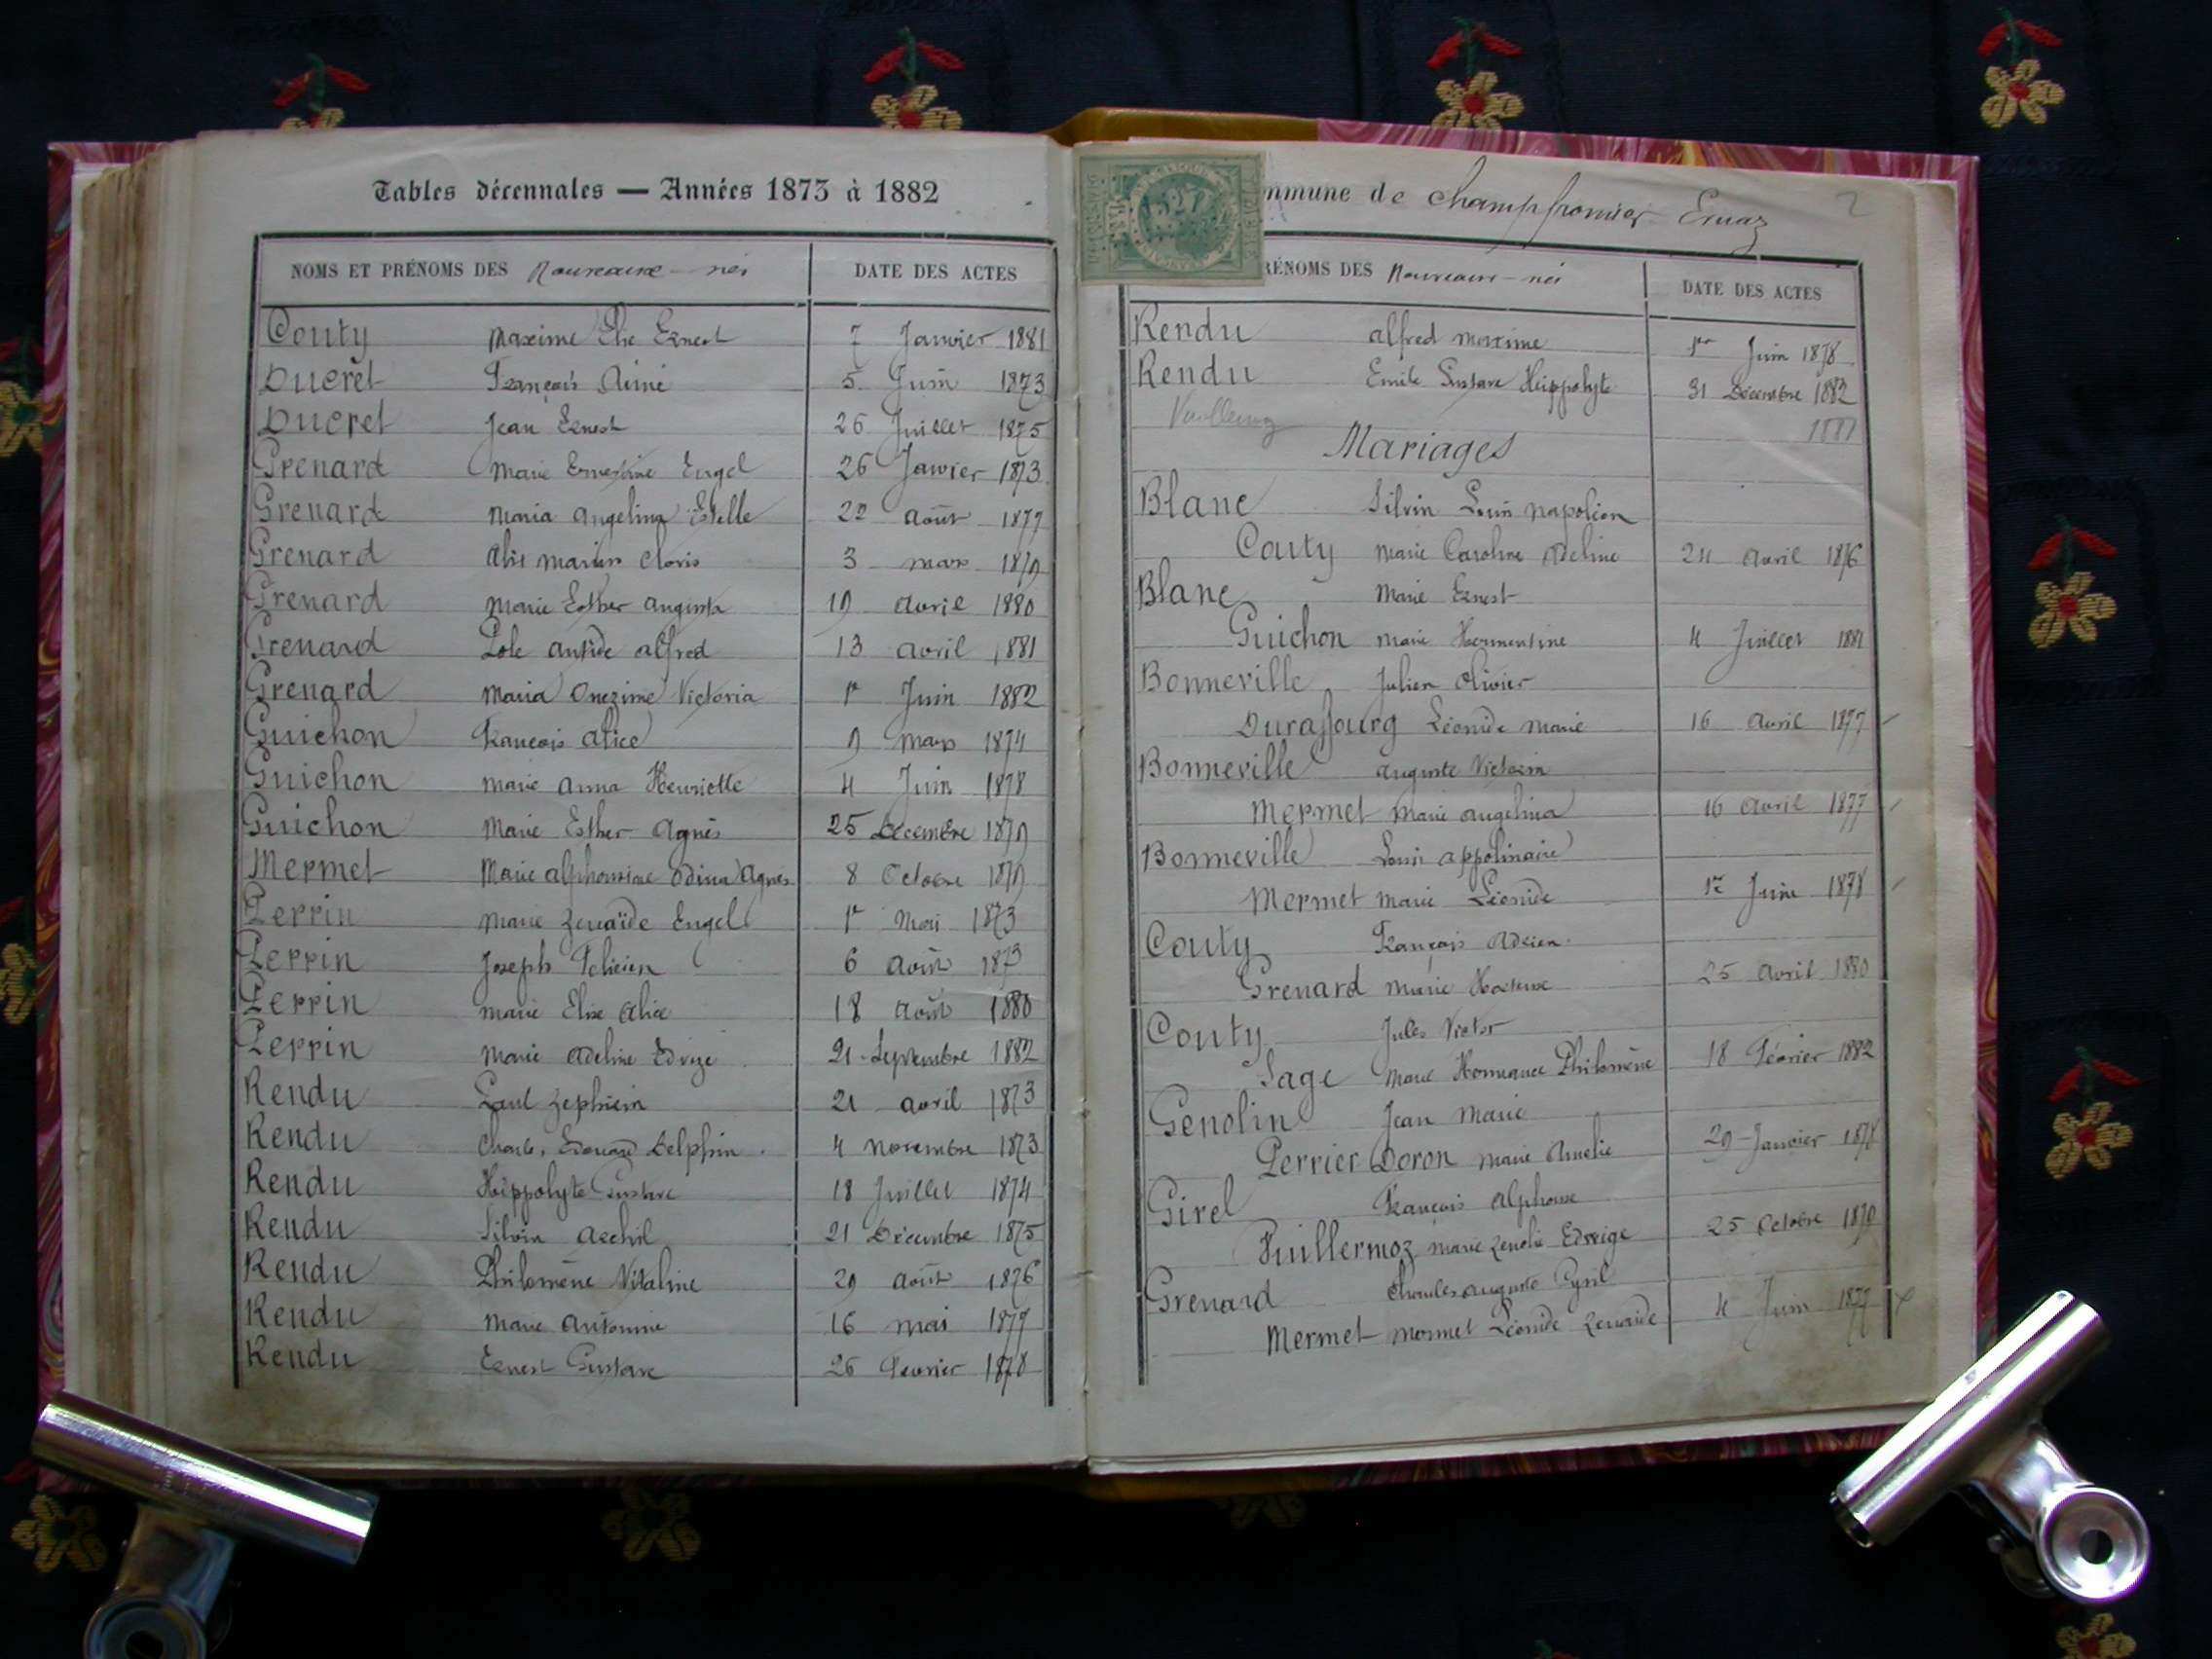 Tables décennales — Années 1873 à 1882
NOMS ET PRÉNOMS DES Nouveaux-nés DATE DES ACTES
Couty Maxime Elie Ernest 7 Janvier 1881
Ducret François Aimé 5 Juin 1873
Ducret Jean Ernest 26 Juillet 1875
Grenard Marie Ernestine Engel 26 Janvier 1873
Grenard Maria Angelina Estelle 22 Août 1877
Grenard Marius Cloris 3 mars 1879
Grenard Marie Esther Augusta 19 Avril 1880
Grenard Pole Antide Alfred 13 Avril 1881
Grenard Maria Onezime Victoria 1er Juin 1882
Guichon François Alice 9 Mars 1874
Guichon Marie Anna Henriette 4 Juin 1878
Guichon Marie Esther Agnès 25 Décembre 1879
Mermet Marie Alphonsine Odina Agnès 8 Octobre 1879
Perrin Marie Zenaïde Engel 1r Mai 1873
Perrin Joseph Félicien 6 Août 1873
Perrin Marie Elise Alice 18 Août 1880
Perrin Marie Adeline Edvige 21 Septembre 1882
Rendu Paul Zephirin 21 Avril 1873
Rendu Charles Edouard Delphin 4 Novembre 1873
Rendu Hippolyte Gustave 18 Juillet 1874
Rendu Silvin Aschil 21 Décembre 1875
Rendu Philomène Vitaline 29 Août 1876
Rendu Marie Antonine 16 mai 1877
Rendu Ernest Gustave 26 Février 1878
mmune de Champfromier Evuaz 2
RÉNOMS DES Nouveaux-nés DATE DES ACTES
Rendu Alfred Maxime 1er Juin 1878
Rendu Emile Gustave Hippolyte 31 Décembre 1882
Mariages
Blanc Silvin Louis Napoléon
Couty Marie Caroline Adeline 24 Avril 1876
Blanc Marie Ernest
Guichon Marie Hermentine 4 Juillet 1881
Bonneville Julien Olivier
Duraffourg Léonide Marie 16 Avril 1877
Bonneville Auguste Victorin
Mermet Marie Angelina 16 Avril 1877
Bonneville Louis Appolinaire
Mermet Marie Léonide 1er Juin 1878
Couty François Adrien
Grenard Marie Hortense 25 Avril 1880
Couty Jules Victor
Sage Marie Philomène 18 Février 1882
Genolin Jean Marie
Perrier Doron Marie Amelie 29 Janvier 1878
Girel François Alphonse
Vuillermoz Marie Zenolie Edwige 25 Octobre 1879
Grenard Charles Auguste Cyril
Mermet Mermet Léonide Zenaide 4 Juin 1877